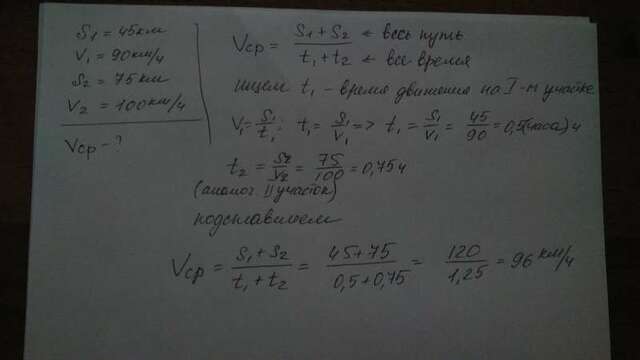 S₁ = 45км
V₁ = 90км/ч
S₂ = 75км
V₂ = 100км/ч
Vср - ?
Vср = (S₁ + S₂) / (t₁ + t₂) ← весь путь
← все время
ищем t₁ - время движения на I-м участке
V₁ = S₁/t₁; t₁ = S₁/V₁ => t₁ = S₁/V₁ = 45/90 = 0,5(часа) ч
t₂ = S₂/V₂ = 75/100 = 0,75 ч
(аналог. II участок)
подставляем
Vср = (S₁ + S₂) / (t₁ + t₂) = (45+75) / (0,5+0,75) = 120 / 1,25 = 96 км/ч